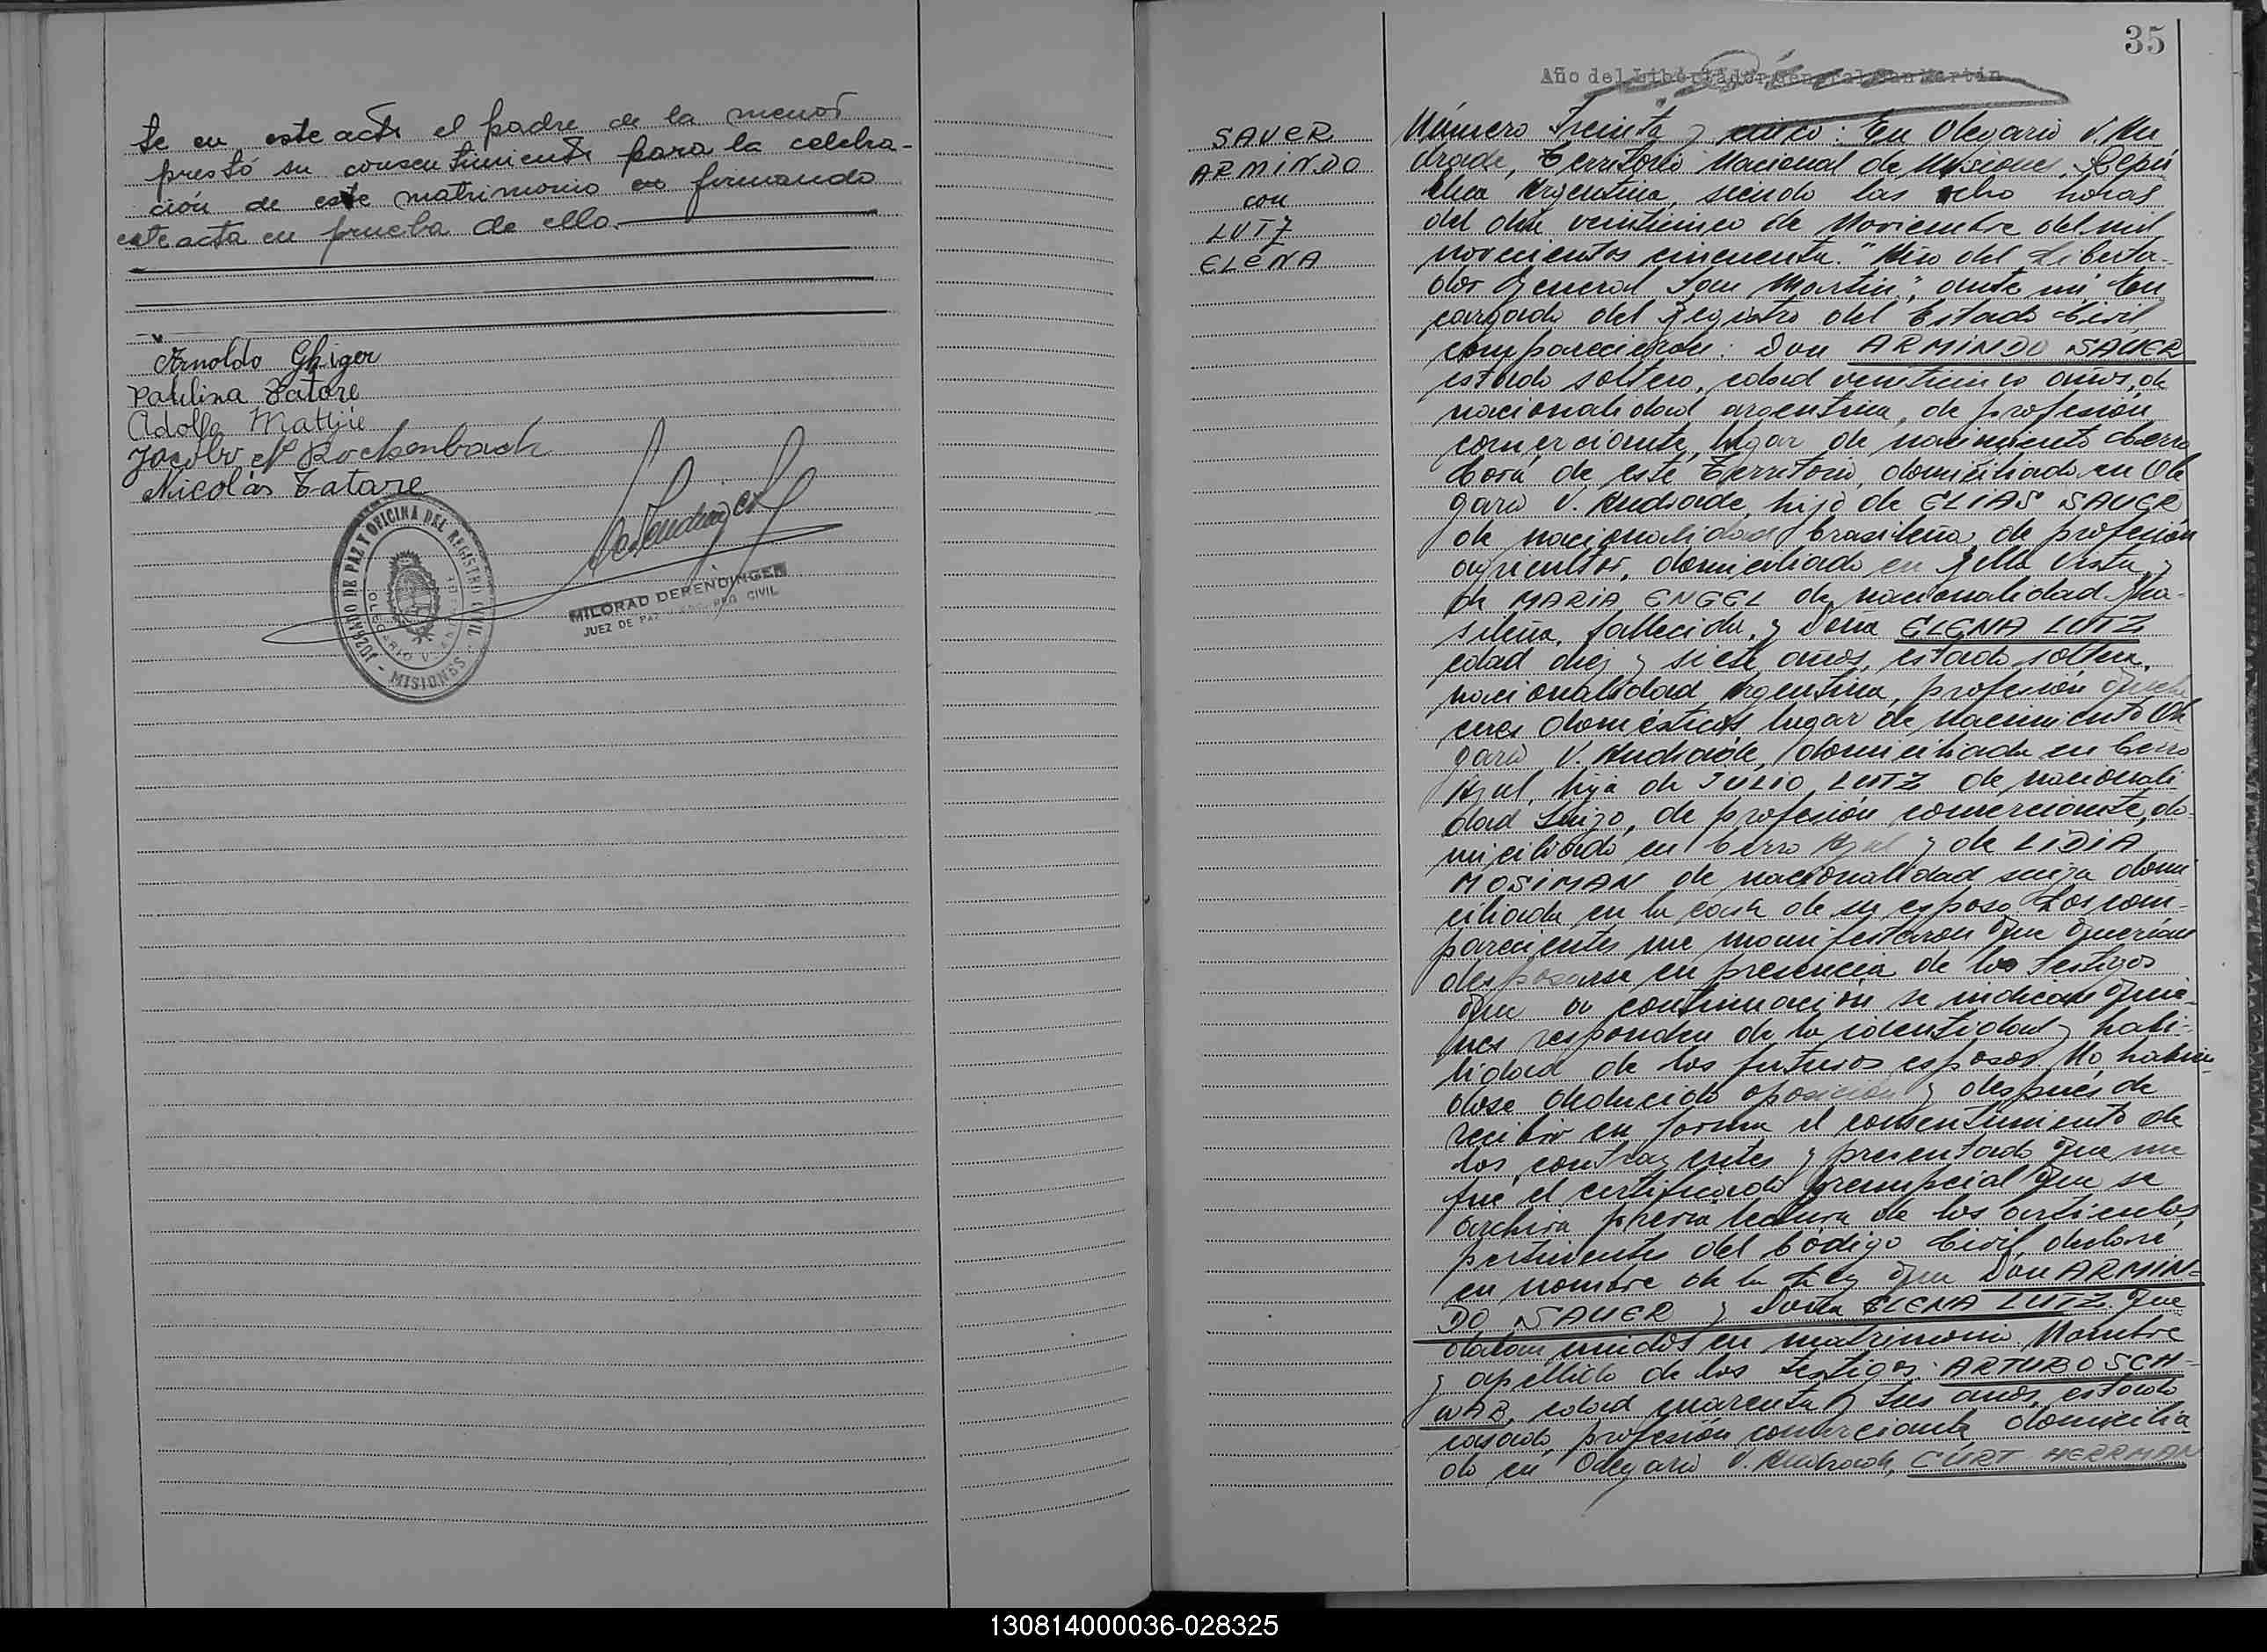 te en este acto el padre de la menor
prestó su consentimiento para la celebra-
ción de este matrimonio firmando
este acta en prueba de ello.
Arnoldo Ghiger
Paulina Tatare
Adolfo Mattjie
Jacobo Rockenbach
Nicolás Tatare
JUZGADO DE PAZ Y OFICINA DEL REGISTRO CIVIL
- MISIONES -
MILORAD DERENDINGER
JUEZ DE PAZ REG. CIVIL
35
Año del Libertador General San Martín
SAUER
ARMINDO
con
LUTZ
ELENA
Número Treinta y cinco: En Olegario V. An
drade, Territorio Nacional de Misiones, Repú
blica Argentina, siendo las ocho horas
del dia veinticinco de Noviembre del mil
novecientos cincuenta. "Año del Liberta-
dor General San Martin", ante mi En
cargado del Registro del Estado Civil
comparecieron: Don ARMINDO SAUER
estado soltero, edad veinticinco años, de
nacionalidad argentina, de profesión
comerciante, lugar de nacimiento
Corá de este Territorio, domiciliado en Ole
gario V. Andrade, hijo de ELIAS SAUER
de nacionalidad brasileña, de profesión
agricultor, domiciliado en Bella Vista, y
de MARIA ENGEL de nacionalidad bra-
sileña, fallecida, y Doña ELENA LUTZ
edad diez y siete años, estado soltera,
nacionalidad Argentina, profesión queha
ceres domésticos lugar de nacimiento Ole
gario V. Andrade, domiciliada en Cerro
Azul, hija de JULIO LUTZ de nacionali
dad Suizo, de profesión comerciante, do-
miciliado en Cerro Azul y de LIDIA
MOSIMAN de nacionalidad suiza domi
ciliada en la casa de su esposo. Los com-
parecientes me manifestaron que querían
desposarse en presencia de los testigos
que a continuación se indican quie-
nes responden de la identidad y habi-
lidad de los futuros esposos. No habien
dose deducido oposición y después de
recibir en forma el consentimiento de
los contrayentes y presentado que me
fué el certificado prenupcial que se
archiva previa lectura de los artículos
pertinentes del Código Civil, declaré
en nombre de la Ley que Don ARMIN-
DO SAUER y Doña ELENA LUTZ. que
daban unidos en matrimonio. Nombre
y apellido de los testigos: ARTURO SCH-
WAB, edad cuarenta y tres años, estado
casado, profesión comerciante, domicilia
do en Olegario V. Andrade, CURT HERRMAN
130814000036-028325